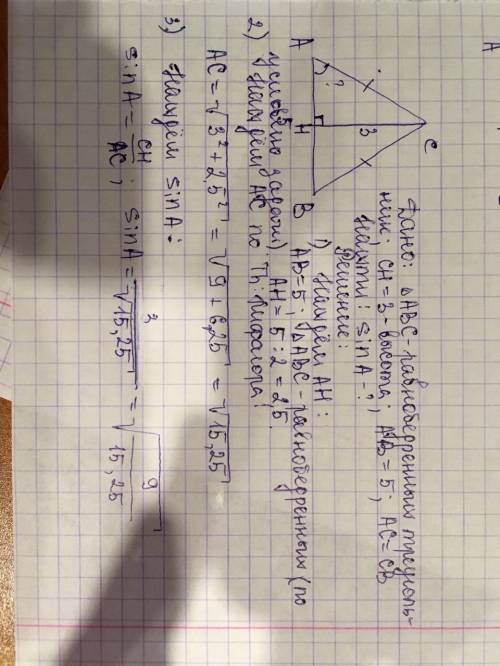 A
A
?
H
3
C
B
5
Дано: △ABC - равнобедренный треуголь-
ник; CH = 3 - высота; AB = 5; AC = CB
Найти: sin A - ?
Решение:
1) Найдём AH:
AB = 5; △ABC - равнобедренный (по
условию задачи) AH = 5 : 2 = 2,5
2) Найдём AC по Th: Пифагора:
AC = √3² + 2,5² = √9 + 6,25 = √15,25
3) Найдём sin A:
sin A = CH/AC; sin A = 3/√15,25 = √9/15,25